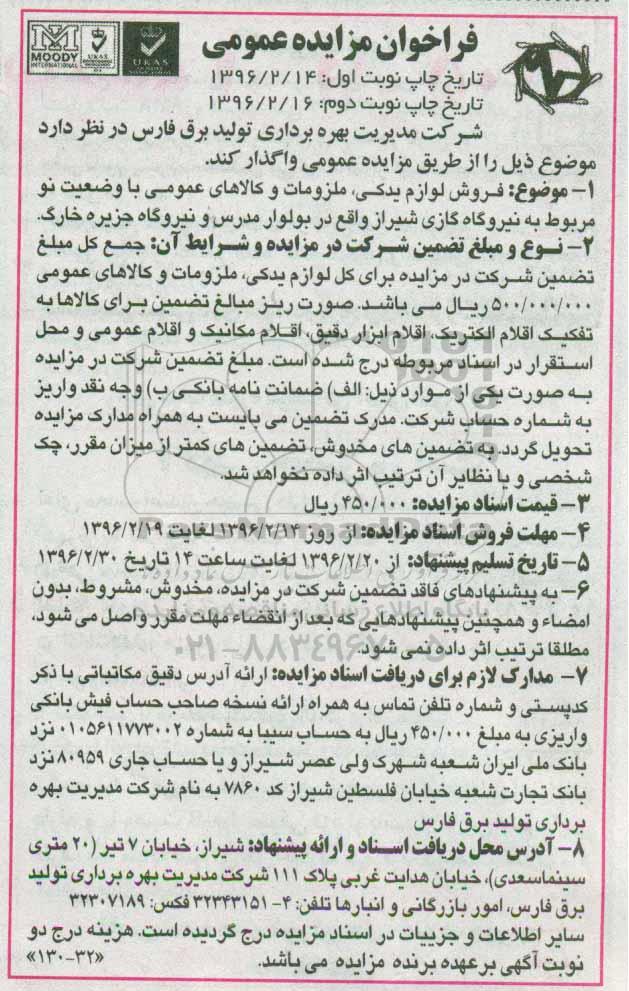 فراخوان مزایده عمومی
MOODY
INTERNATIONAL
UKAS
UKAS
تاریخ چاپ نوبت اول: ۱۳۹۶/۲/۱۴
تاریخ چاپ نوبت دوم: ۱۳۹۶/۲/۱۶
شرکت مدیریت بهره برداری تولید برق فارس در نظر دارد
موضوع ذیل را از طریق مزایده عمومی واگذار کند.
۱- موضوع: فروش لوازم یدکی، ملزومات و کالاهای عمومی با وضعیت نو
مربوط به نیروگاه گازی شیراز واقع در بولوار مدرس و نیروگاه جزیره خارگ.
۲- نوع و مبلغ تضمین شرکت در مزایده و شرایط آن: جمع کل مبلغ
تضمین شرکت در مزایده برای کل لوازم یدکی، ملزومات و کالاهای عمومی
۵۰۰/۰۰۰/۰۰۰ ریال می باشد. صورت ریز مبالغ تضمین برای کالاها به
تفکیک اقلام الکتریک، اقلام ابزار دقیق، اقلام مکانیک و اقلام عمومی و محل
استقرار در اسناد مربوطه درج شده است. مبلغ تضمین شرکت در مزایده
به صورت یکی از موارد ذیل: الف) ضمانت نامه بانکی ب) وجه نقد واریز
به شماره حساب شرکت. مدرک تضمین می بایست به همراه مدارک مزایده
تحویل گردد. به تضمین های مخدوش، تضمین های کمتر از میزان مقرر، چک
شخصی و یا نظایر آن ترتیب اثر داده نخواهد شد.
۳- قیمت اسناد مزایده: ۴۵۰/۰۰۰ ریال
۴- مهلت فروش اسناد مزایده: از روز ۱۳۹۶/۲/۱۴ لغایت ۱۳۹۶/۲/۱۹
۵- تاریخ تسلیم پیشنهاد: از ۱۳۹۶/۲/۲۰ لغایت ساعت ۱۴ تاریخ ۱۳۹۶/۲/۳۰
۶- به پیشنهادهای فاقد تضمین شرکت در مزایده، مخدوش، مشروط، بدون
امضاء و همچنین پیشنهادهایی که بعد از انقضاء مهلت مقرر واصل می شود،
مطلقا ترتیب اثر داده نمی شود.
۰۲۱-۸۸۳۴۹۶۷۰-۵
۷- مدارک لازم برای دریافت اسناد مزایده: ارائه آدرس دقیق مکاتباتی با ذکر
کدپستی و شماره تلفن تماس به همراه ارائه نسخه صاحب حساب فیش بانکی
واریزی به مبلغ ۴۵۰/۰۰۰ ریال به حساب سیبا به شماره ۰۱۰۵۶۱۱۷۷۳۰۰۲ نزد
بانک ملی ایران شعبه شهرک ولی عصر شیراز و یا حساب جاری ۸۰۹۵۹ نزد
بانک تجارت شعبه خیابان فلسطین شیراز کد ۷۸۶۰ به نام شرکت مدیریت بهره
برداری تولید برق فارس
۸- آدرس محل دریافت اسناد و ارائه پیشنهاد: شیراز، خیابان ۷ تیر (۲۰ متری
سینماسعدی)، خیابان هدایت غربی پلاک ۱۱۱ شرکت مدیریت بهره برداری تولید
برق فارس، امور بازرگانی و انبارها تلفن: ۴- ۳۲۳۴۳۱۵۱ فکس: ۳۲۳۰۷۱۸۹
سایر اطلاعات و جزییات در اسناد مزایده درج گردیده است. هزینه درج دو
نوبت آگهی بر عهده برنده مزایده می باشد. «۱۳۰-۳۲»